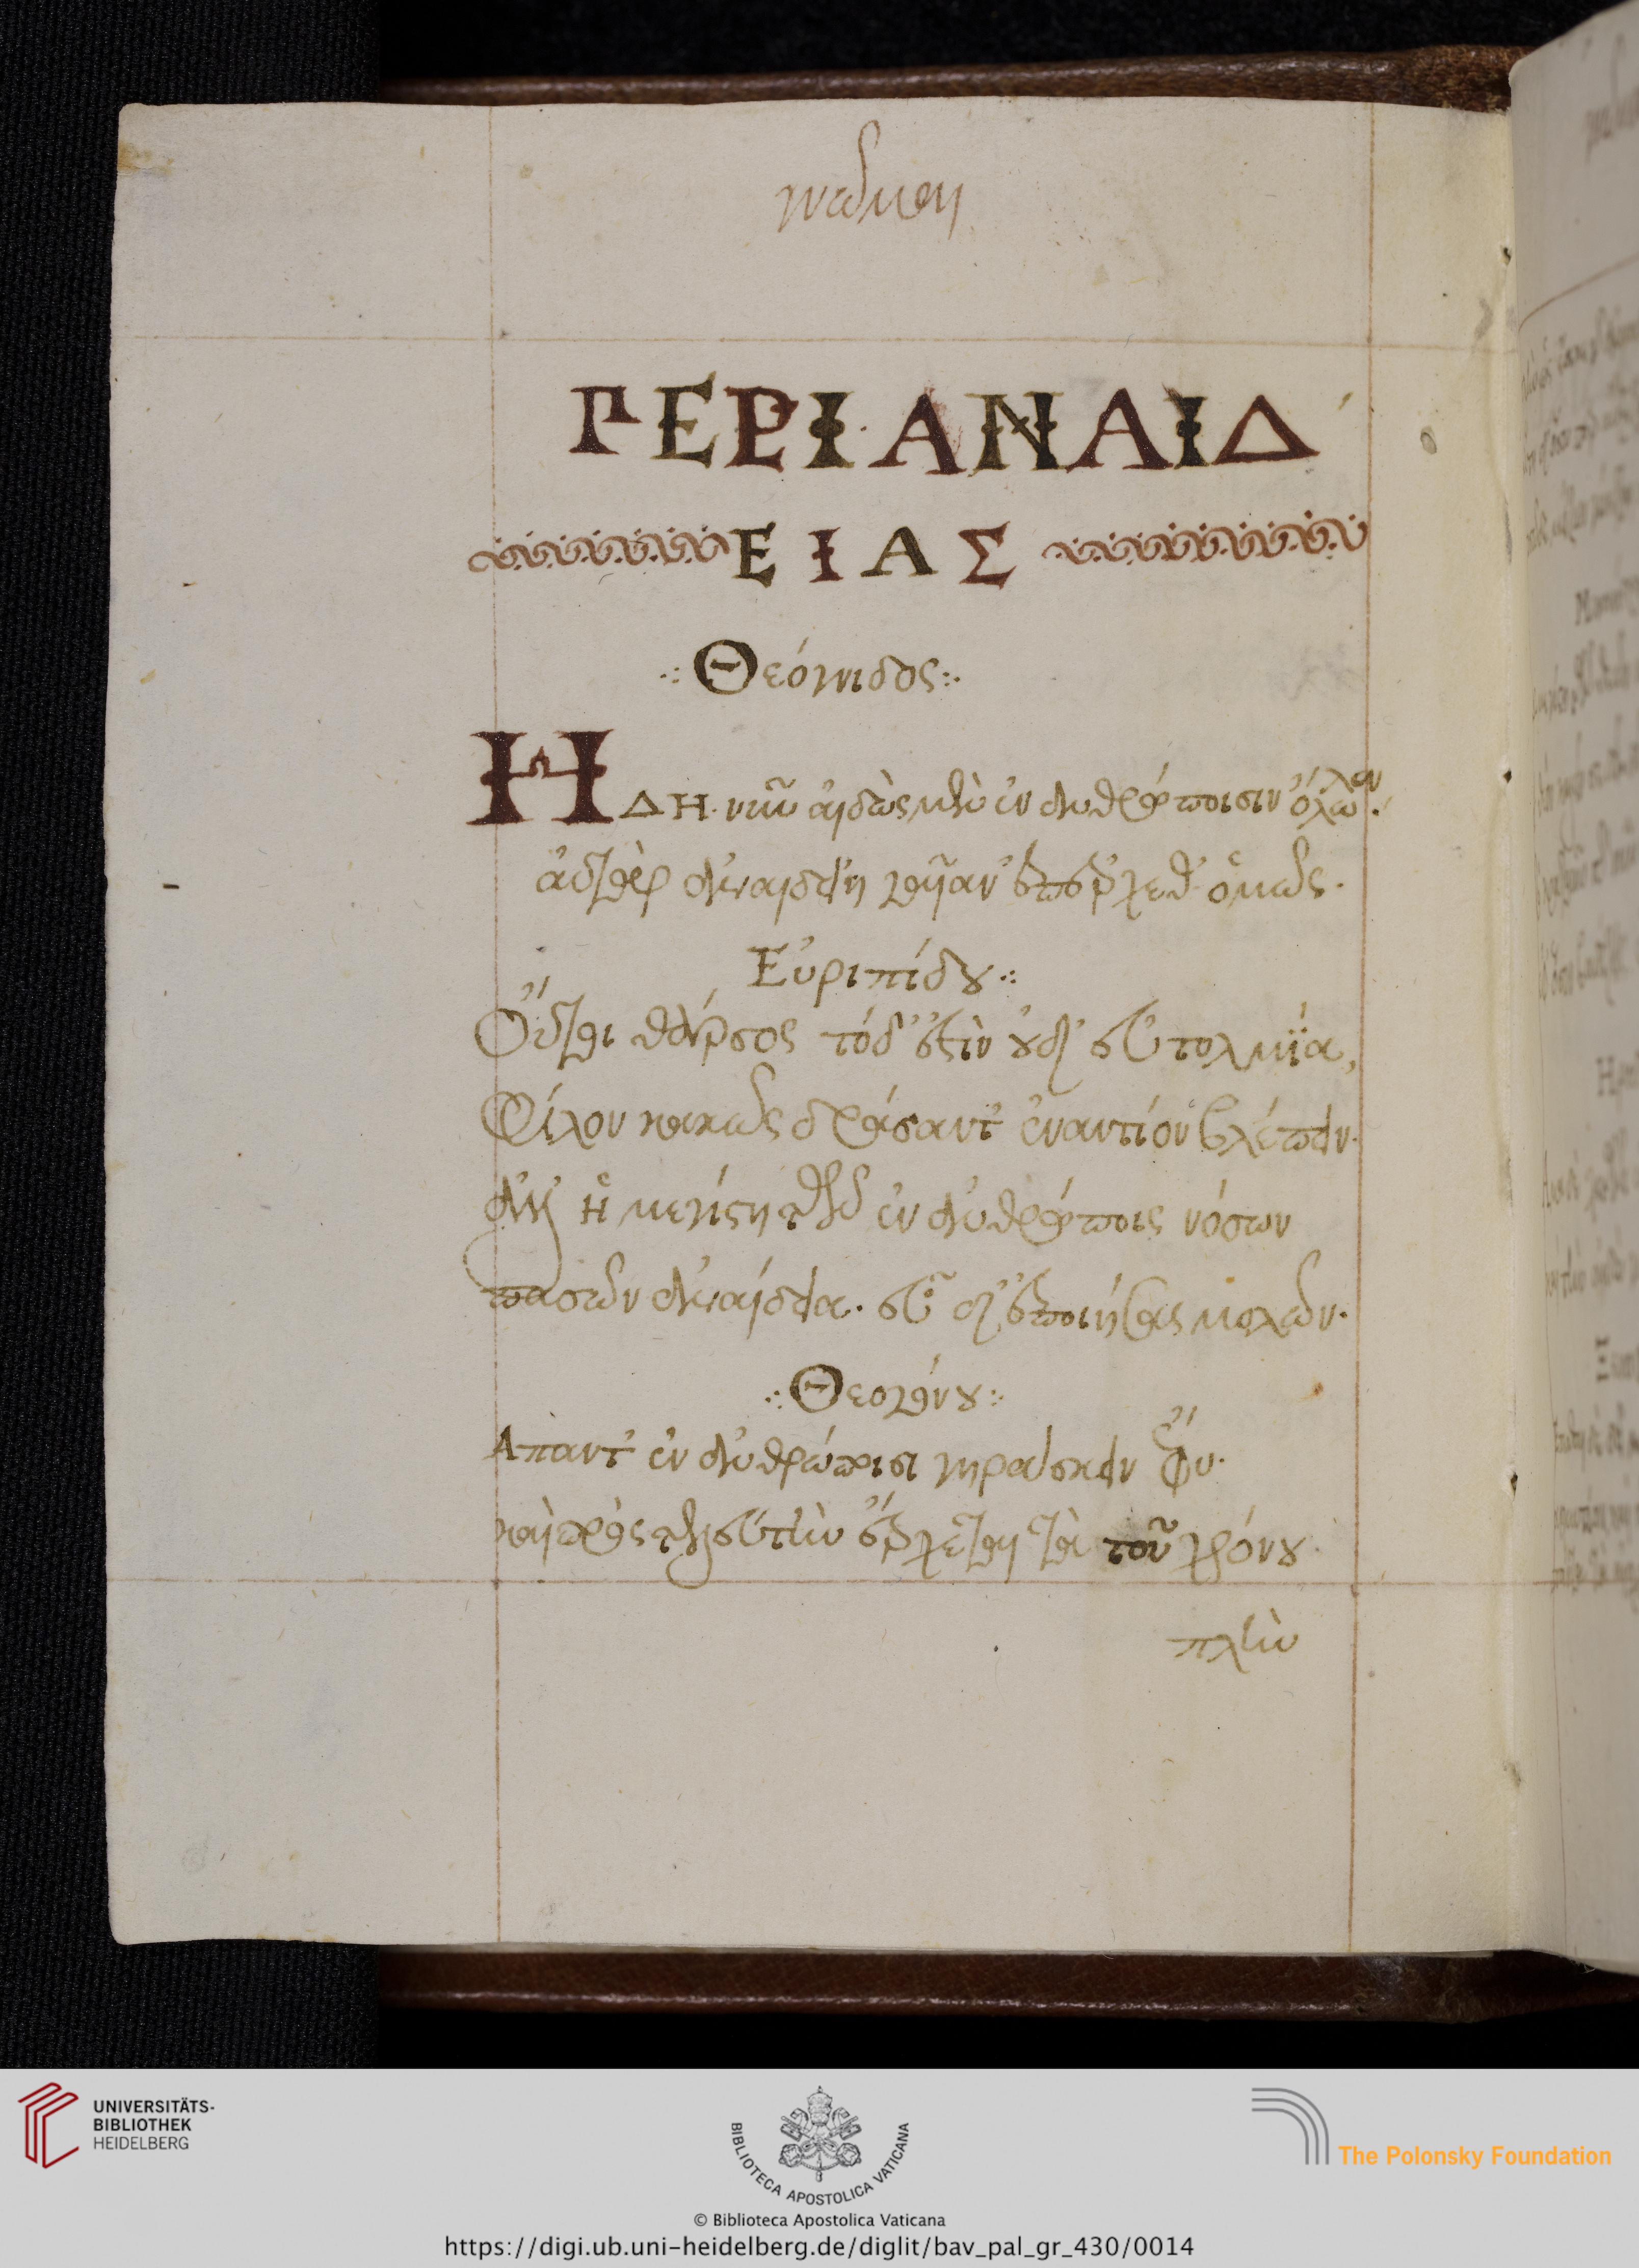 γνῶμαι
ΠΕΡΙ ΑΝΑΙΔ
ΕΙΑΣ
Θεόγνιδος
ΗΔΗ νῦν αἰδὼς μὲν ἐν ἀνθρώποισιν ὄλωλεν.
αὐτὰρ ἀναιδείη γαῖαν ἐπέρχεθ' ὁμῶς.
Εὐριπίδου
Οὔτοι θάρσος τόδ' ἐστὶν οὐδ' εὐτολμία,
Φίλον κακῶς δράσαντ' ἐναντίον βλέπειν.
ἀλλ' ἡ μεγίστη τῶν ἐν ἀνθρώποις νόσων
πασῶν ἀναίδεια. εὖ δ' ἐποίησας μολών.
Θεογένου
Απαντ' ἐν ἀνθρώποισι γηράσκειν ἔφυ.
καὶ πρὸς τελευτὴν ἔρχεται διὰ τοῦ χρόνου
πλὴν
UNIVERSITÄTS-
BIBLIOTHEK
HEIDELBERG
BIBLIOTECA APOSTOLICA VATICANA
The Polonsky Foundation
© Biblioteca Apostolica Vaticana
https://digi.ub.uni-heidelberg.de/diglit/bav_pal_gr_430/0014